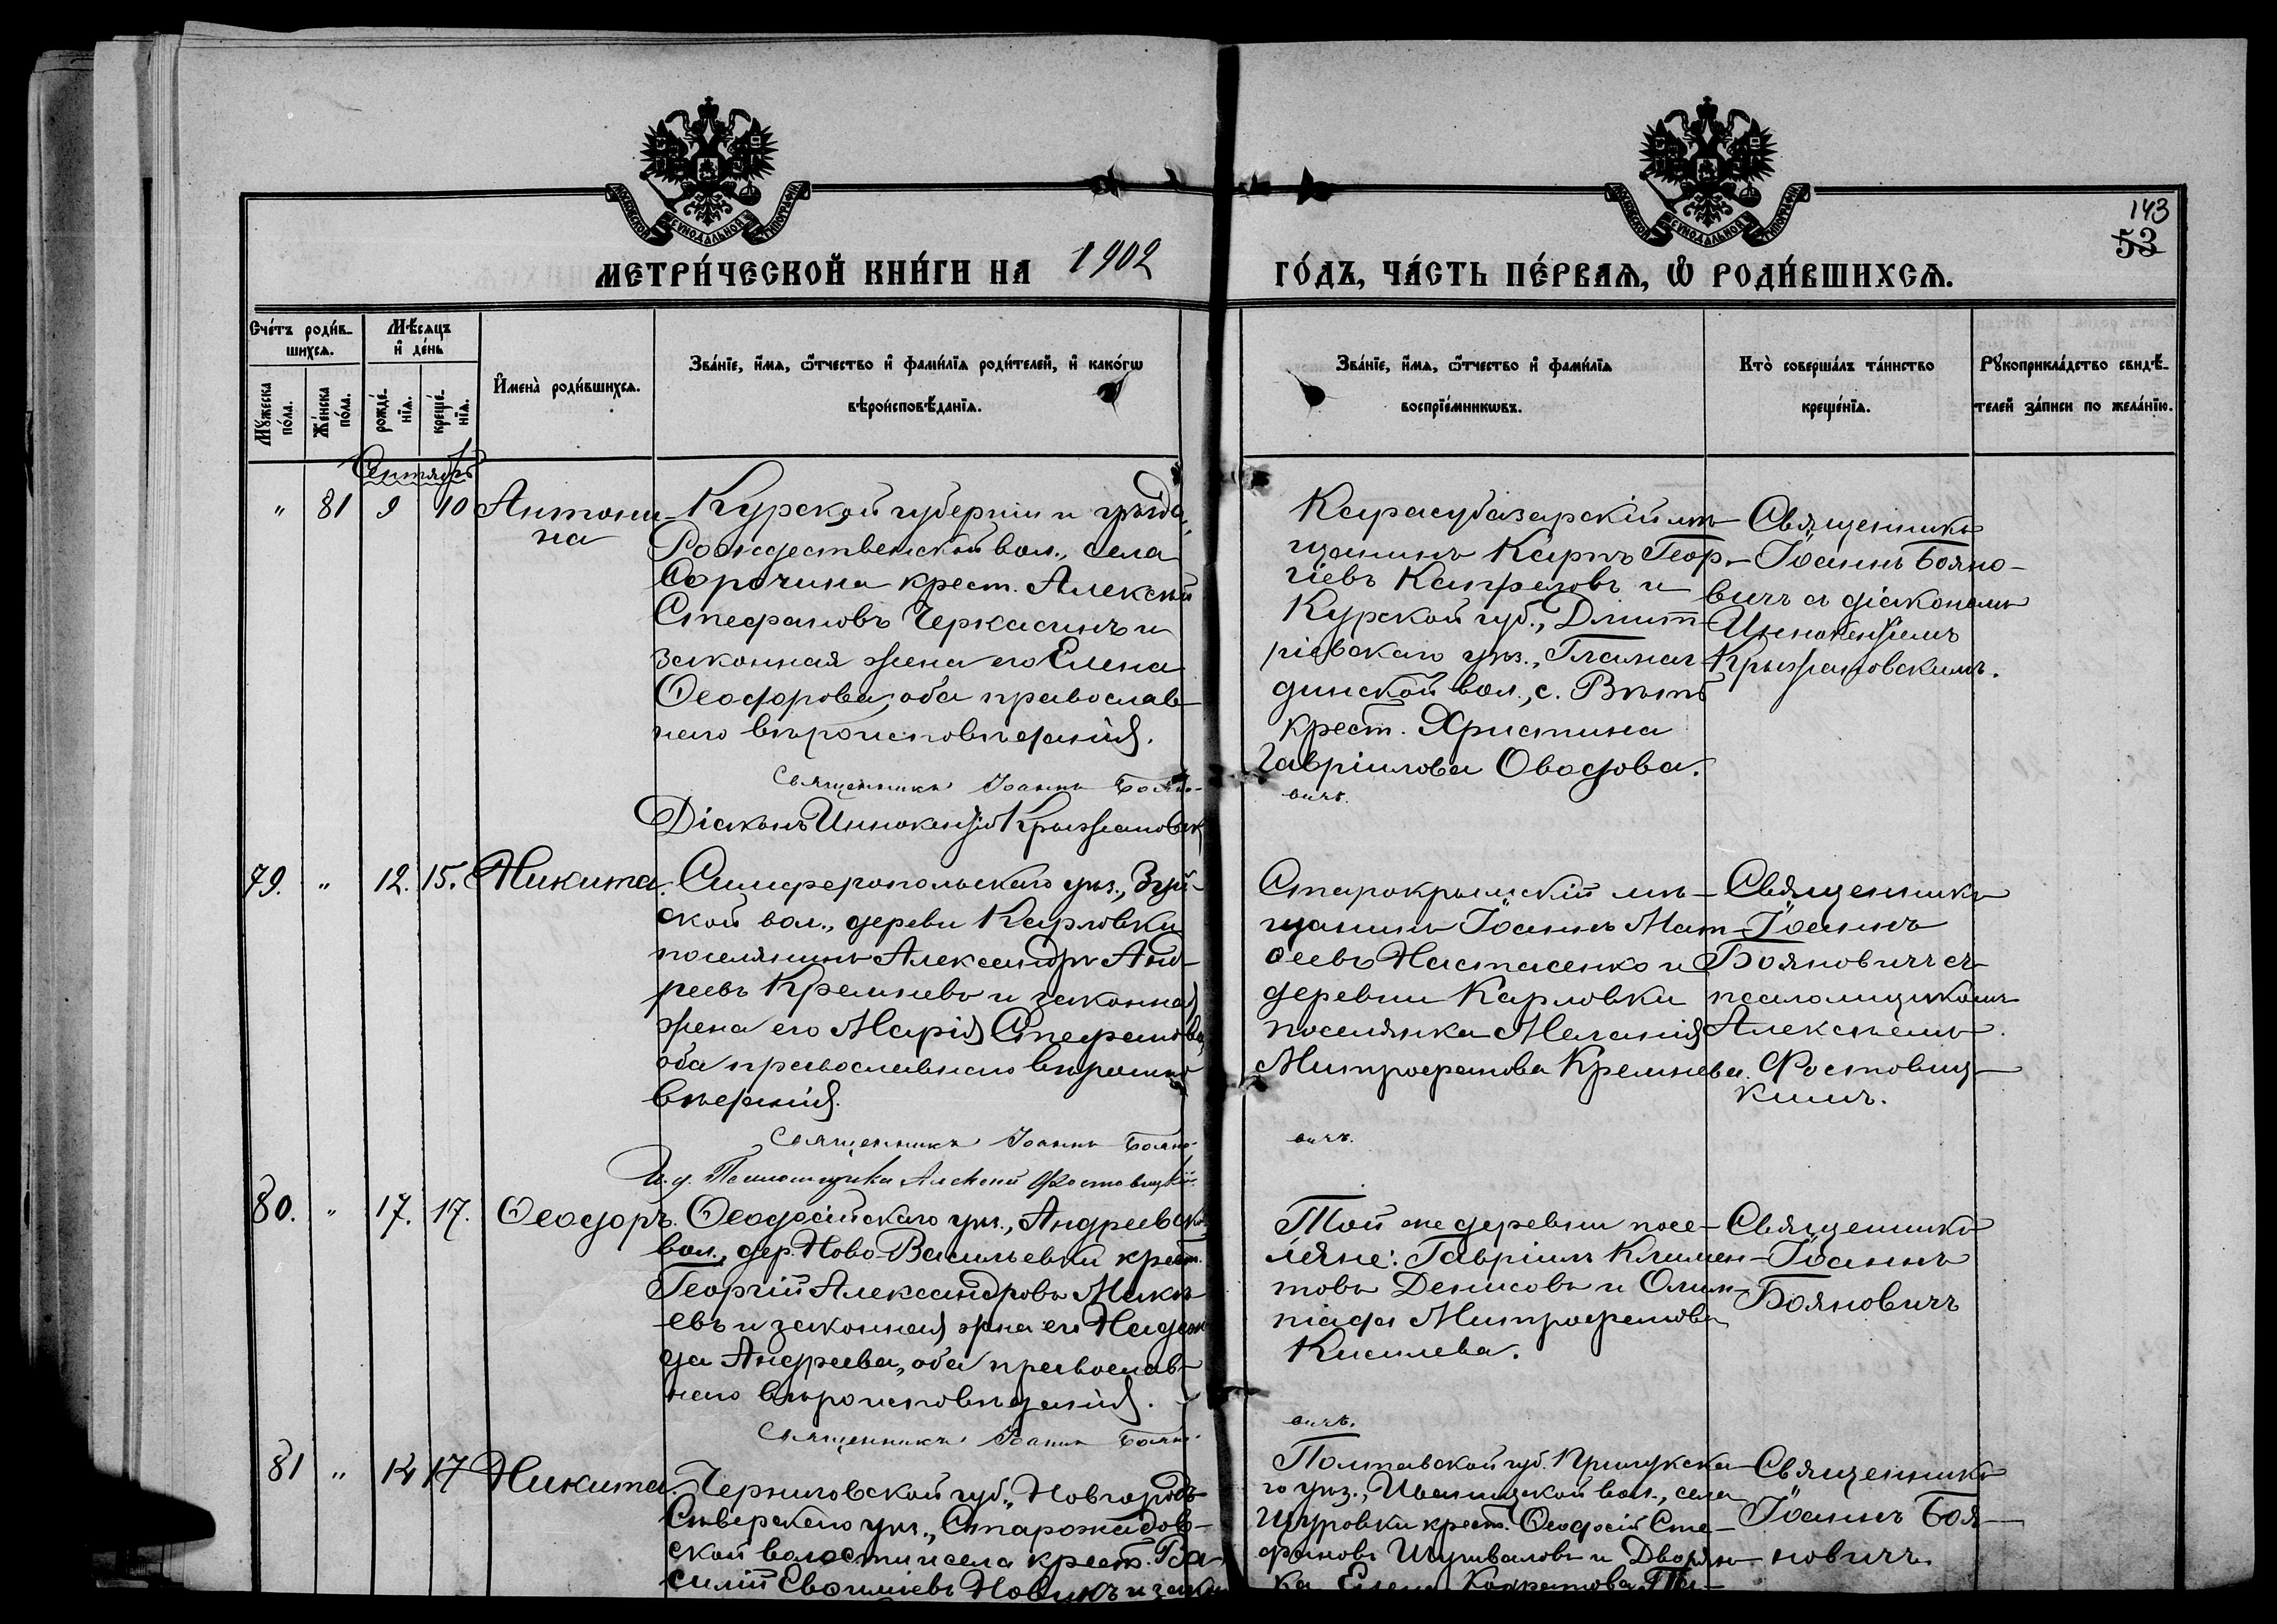 МОСКОВСКОЙ СѴНОДАЛЬНОЙ ТИПОГРАФІИ
МОСКОВСКОЙ СѴНОДАЛЬНОЙ ТИПОГРАФІИ
143
53
МЕТРИ́ЧЕСКОЙ КНИ́ГИ НА 1902 ГО́ДЪ, ЧА́СТЬ ПЕ́РВАѦ, Ѽ РОДИ́ВШИХСѦ.
Сче́тъ роди́в-
шихсѧ.
Мѣ́сяцъ
и҆ де́нь
Мꙋ́жеска
по́ла.
Же́нска
по́ла.
рожде́-
нїѧ.
креще́-
нїѧ.
И҆мена̀ роди́вшихсѧ.
Зва́нїе, и҆́мѧ, ѻ҆́тчество и҆ фами́лїѧ роди́телей, и҆ како́гѡ
вѣроисповѣ́данїѧ.
Зва́нїе, и҆́мѧ, ѻ҆́тчество и҆ фами́лїѧ
воспрїе́мникѡвъ.
Кто̀ соверша́лъ та́инство
креще́нїѧ.
Рꙋкоприкла́дство свидѣ́-
телей за́писи по жела́нїю.
Сентябрь
" 81 9 10 Антони
на
Курской губерніи и уѣзда,
Рождественской вол., села
Сорочина крест. Алексѣй
Стефановъ Черкасинъ и
законная жена его Елена
Ѳеодорова, оба православ-
наго вѣроисповѣданія.
Священникъ Іоаннъ Бояно-
вичъ.
Діаконъ Иннокентій Крыжановск
Карасубазарскій мѣ-
щанинъ Карпъ Геор-
гіевъ Капрелов и
Курской губ., Дмит-
ріевскаго уѣз., Гламаз
динской вол., с. Вѣть
крест. Христина
Гавріилова Оводова.
Священникъ
Іоаннъ Бояно-
вичъ съ діакономъ
Иннокентіемъ
Крыжановскимъ.
79. " 12. 15. Никита.
Симферопольскаго уѣз., Зуй-
ской вол., дерев Карловки
поселянинъ Александръ Анд-
реевъ Кремневъ и законная
жена его Марія Стефанова,
оба православнаго вѣроиспо
вѣданія.
Священникъ Іоаннъ Бояно-
вичъ.
И. д. Псаломщика Алексѣй Фостовицкій.
Старокрымскій мѣ-
щанинъ Іоаннъ Мат-
ѳеевъ Настасенко и
деревни Карловки
поселянка Меланія
Митрофанова Кремнева.
Священникъ
Іоаннъ
Бояновичъ съ
псаломщикомъ
Алексѣемъ
Фостовиц-
кимъ.
80. " 17. 17. Ѳеодоръ.
Ѳеодосійскаго уѣз., Андреевск
вол., дер. Ново-Васильевки крест.
Георгій Александровъ Макѣ-
евъ и законная жена его Надеж
да Андреева, оба православ-
наго вѣроисповѣданія.
Священникъ Іоаннъ Бояно-
вичъ.
Той же деревни посе-
ляне: Гавріилъ Климен-
товъ Денисовъ и Олим-
піада Митрофанова
Киселева.
Священникъ
Іоаннъ
Бояновичъ
81 " 14 17 Никита.
Черниговской губ., Новгородъ-
Сѣверскаго уѣз.,
ской волости и села крест. Ва-
силій Новикъ и зако
Полтавской губ. Прилукска
го уѣз., Иваницкой вол., села
Щуровки крест. Ѳеодосій Сте-
фановъ Шуваловъ и Дворян-
ка Елена
Священникъ
Іоаннъ Боя-
новичъ.